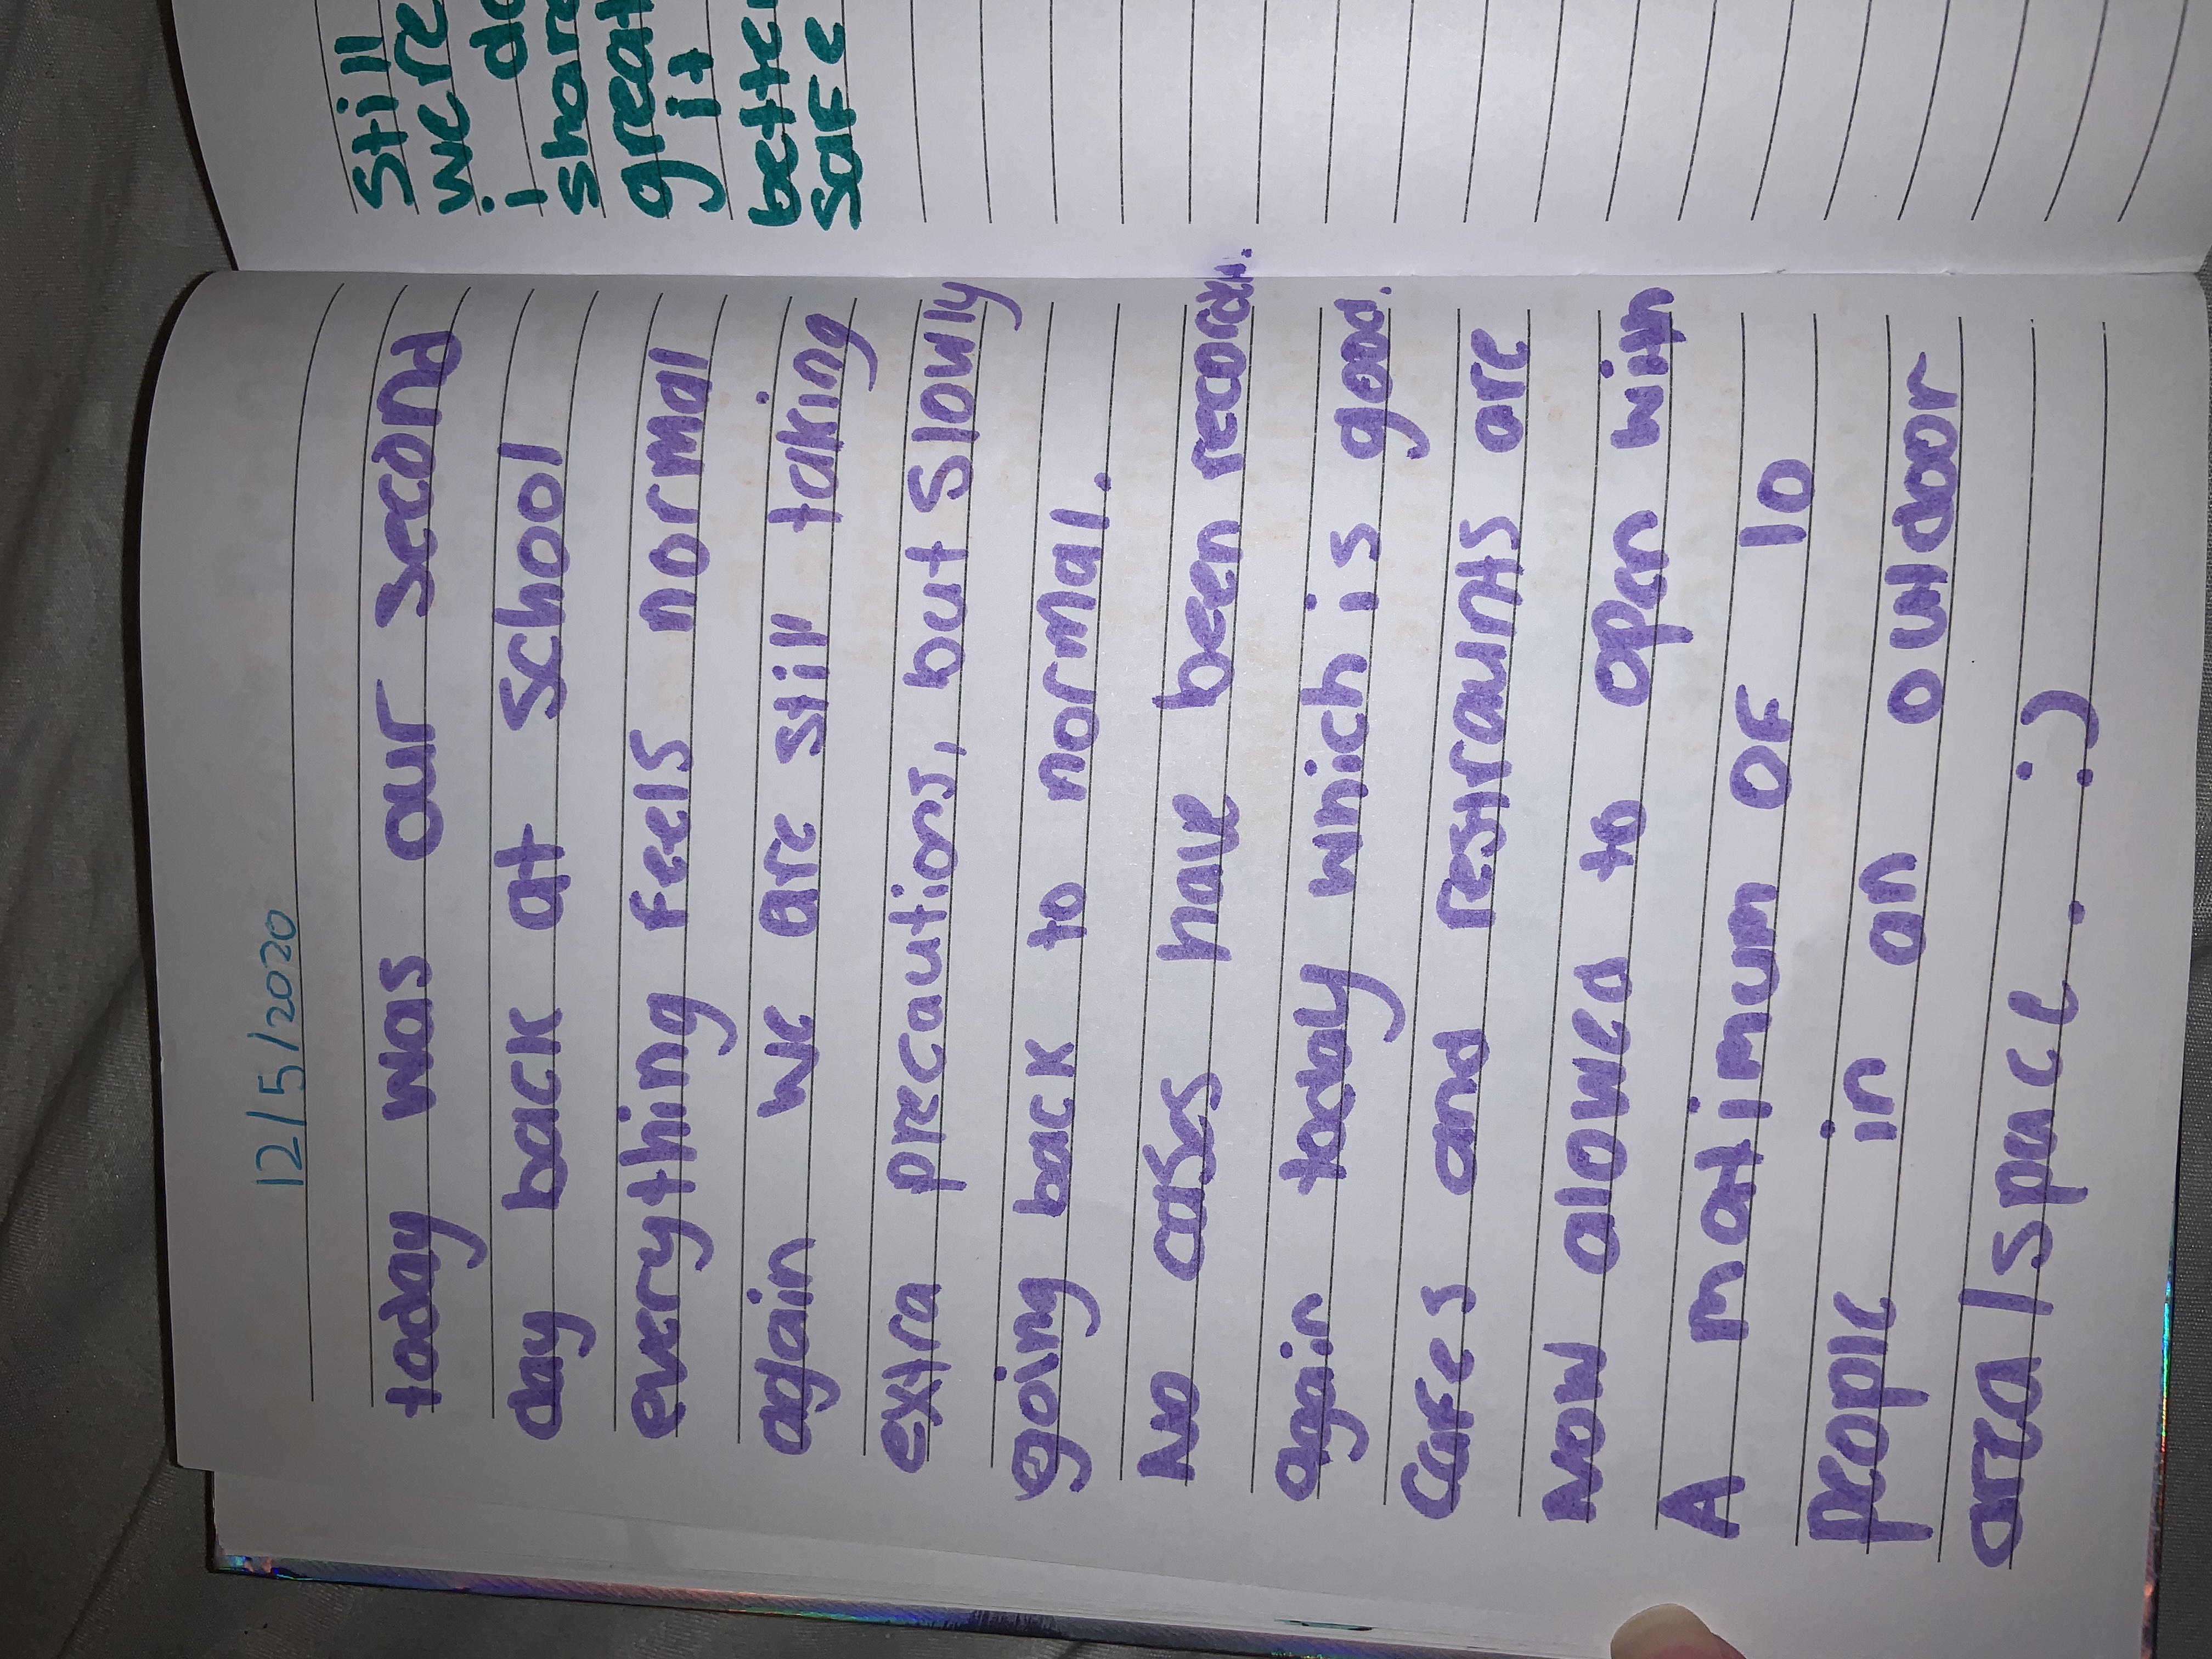 12/5/2020
today was our second
day back at school
everything feels normal
again we are still taking
extra precautions, but slowly
going back to normal.
No cases have been record.
again today which is good.
Cafes and restraunts are
now alowed to open with
A matimum of 10
people in an outdoor
area/space. :)
Still
were
i do
share
great
it
better
safe